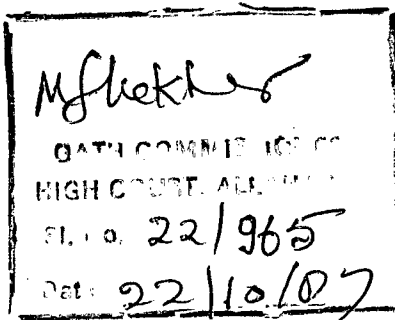 OATH COMMISSIONER
HIGH COURT, ALL
Sl. No. 22/965
Date 22/10/07